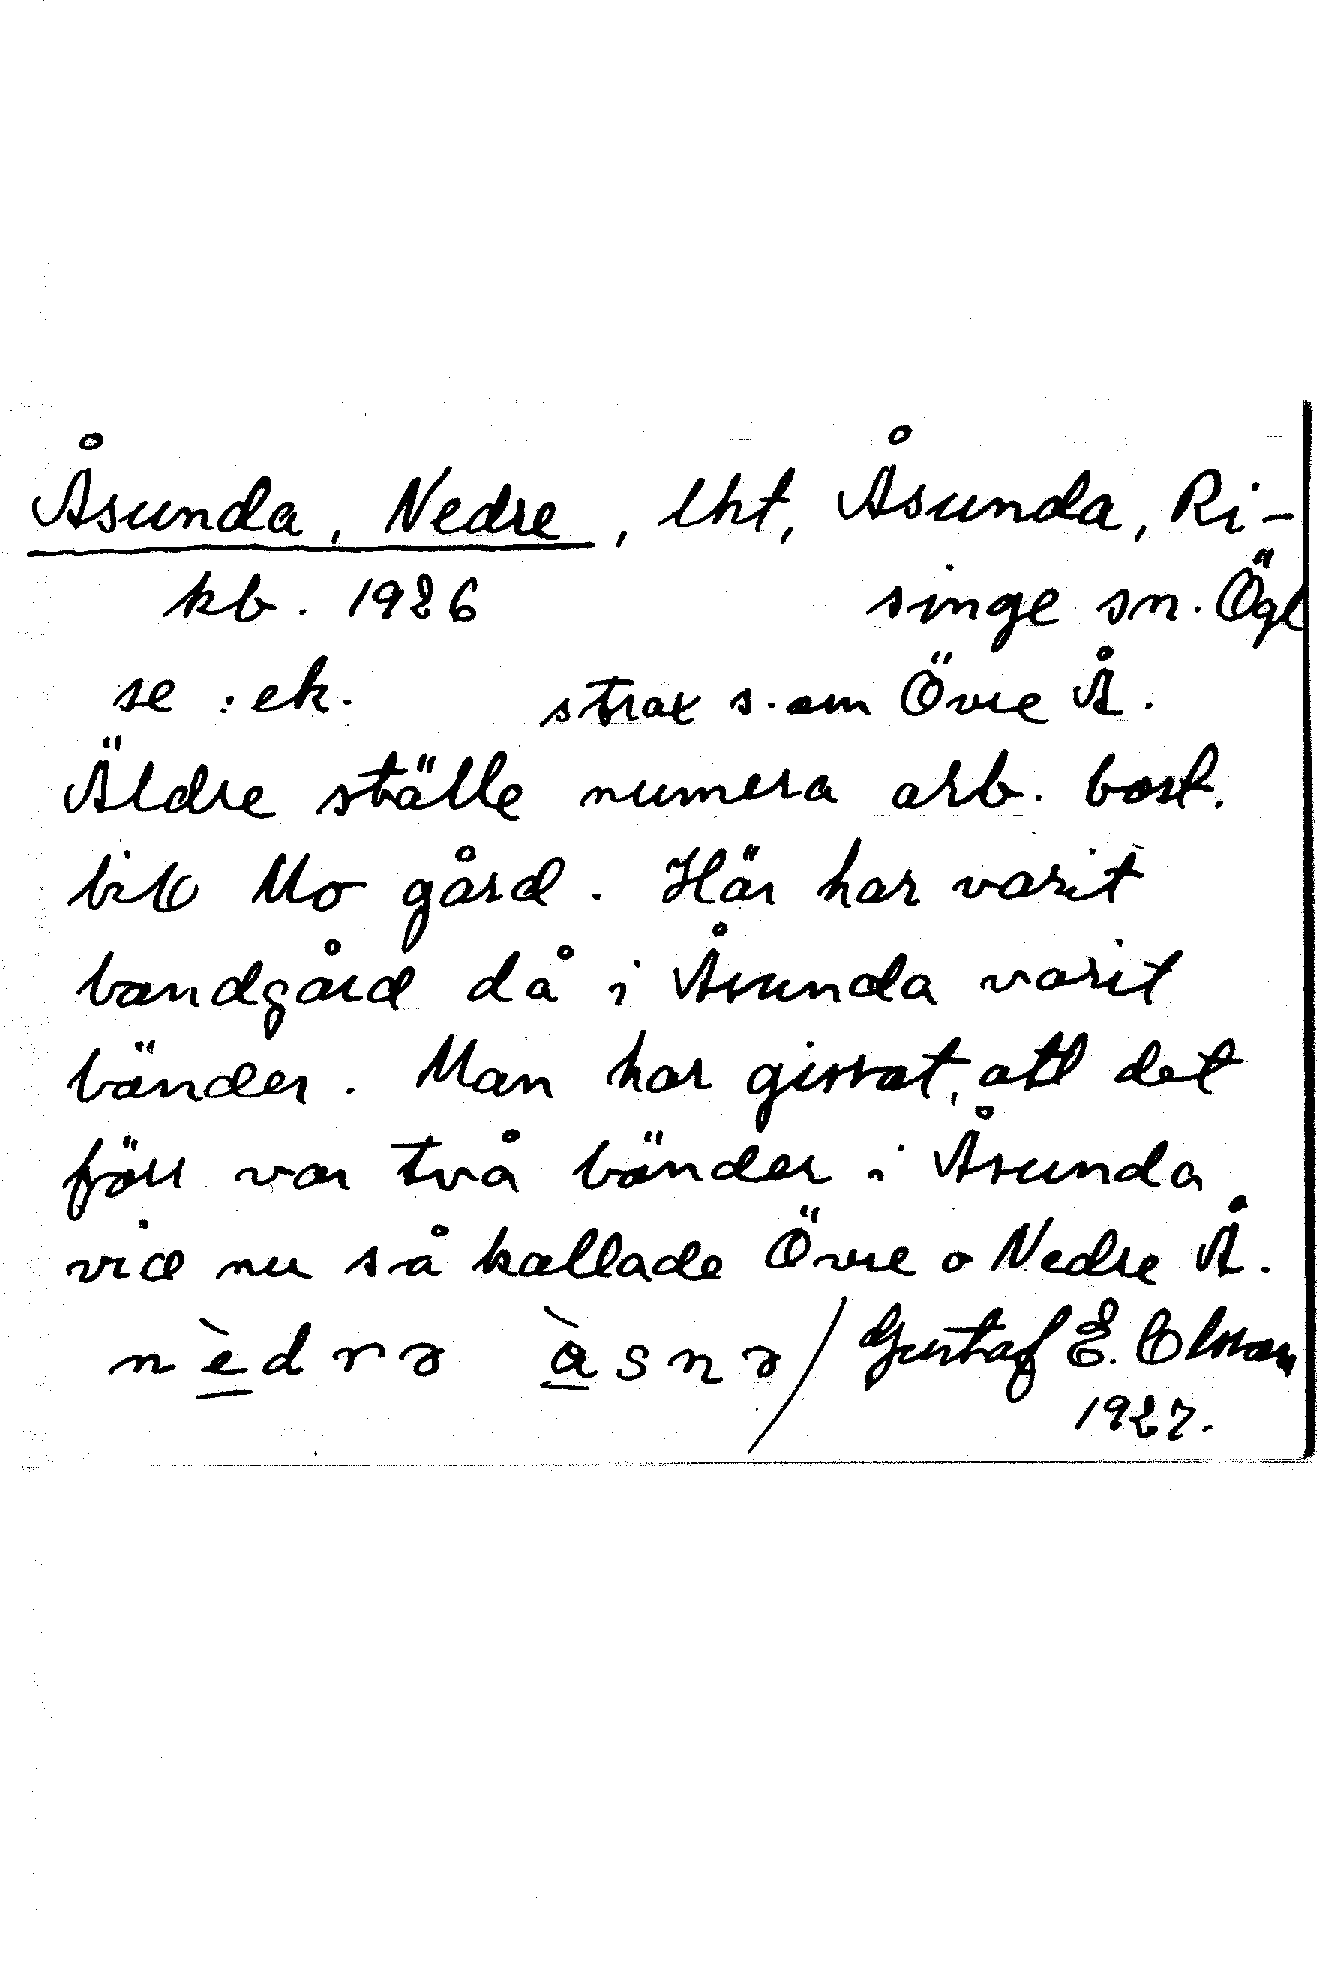 Åsunda, Nedre, lht, Åsunda, Ri-
kb. 1926 singe sn. Ögl
se : ek. strax s. om Övre Å.
Äldre ställe numera arb. bost.
till Mo gård. Här har varit
bondgård då i Åsunda varit
bönder. Man har gissat, att det
förr var två bönder i Åsunda
vid nu så kallade Övre o Nedre Å.
nèdrə àsnə / Gustaf E. Olsson
1927.